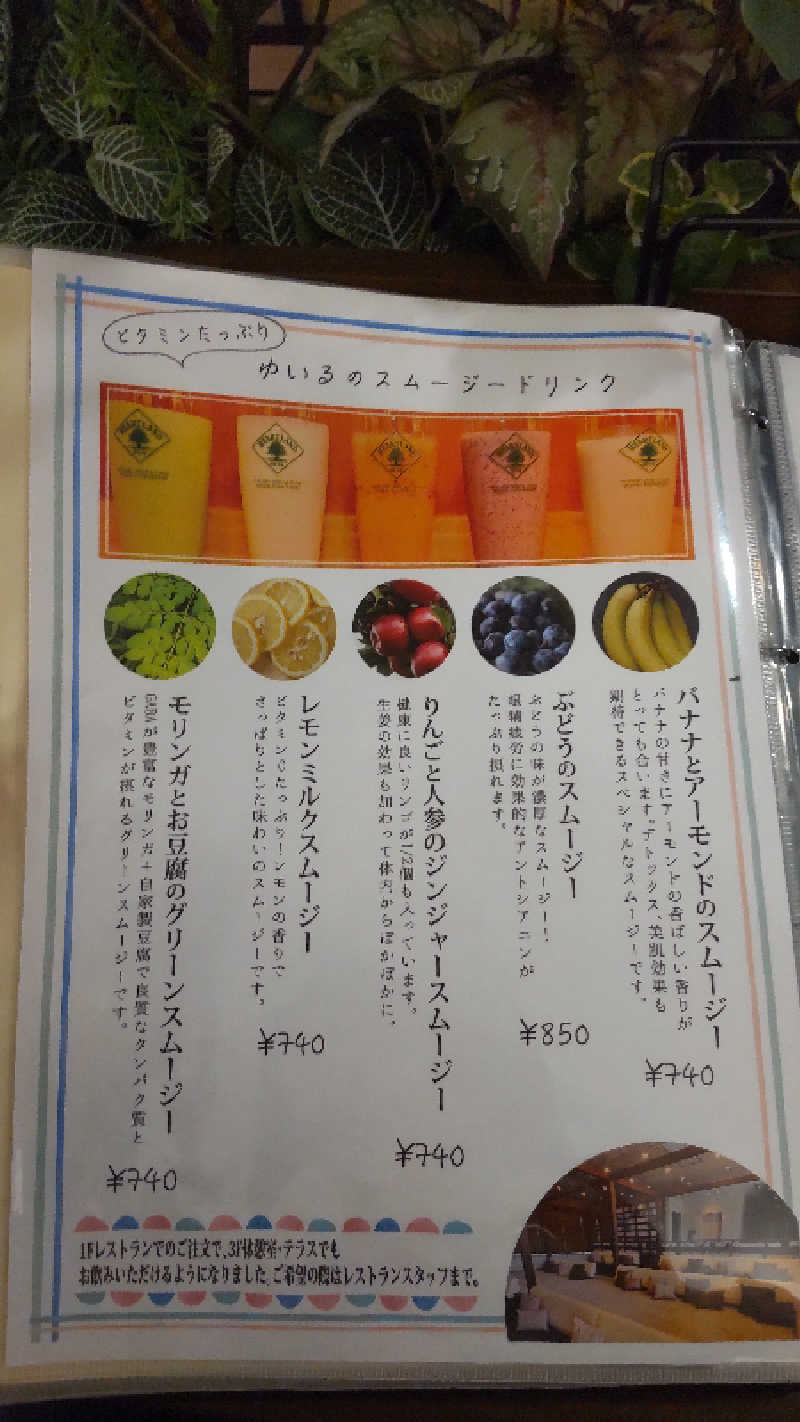 ビタミンたっぷり
ゆいるのスムージードリンク
HEARTLAND
HEARTLAND
HEARTLAND
HEARTLAND
HEARTLAND
バナナとアーモンドのスムージー
バナナの甘さにアーモンドの香ばしい香りが
とっても合います。デトックス、美肌効果も
期待できるスペシャルなスムージーです。
¥740
ぶどうのスムージー
ぶどうの味が濃厚なスムージー!
眼精疲労に効果的なアントシアニンが
たっぷり摂れます。
¥850
りんごと人参のジンジャースムージー
健康に良いリンゴが1/2個も入っています。
生姜の効果も加わって体内からぽかぽかに。
¥740
レモンミルクスムージー
ビタミンCたっぷり!レモンの香りで
さっぱりとした味わいのスムージーです。
¥740
モリンガとお豆腐のグリーンスムージー
GABAが豊富なモリンガ+自家製豆腐で良質なタンパク質と
ビタミンが摂れるグリーンスムージーです。
¥740
1Fレストランでのご注文で、3F休憩室・テラスでも
お飲みいただけるようになりました。ご希望の際はレストランスタッフまで。